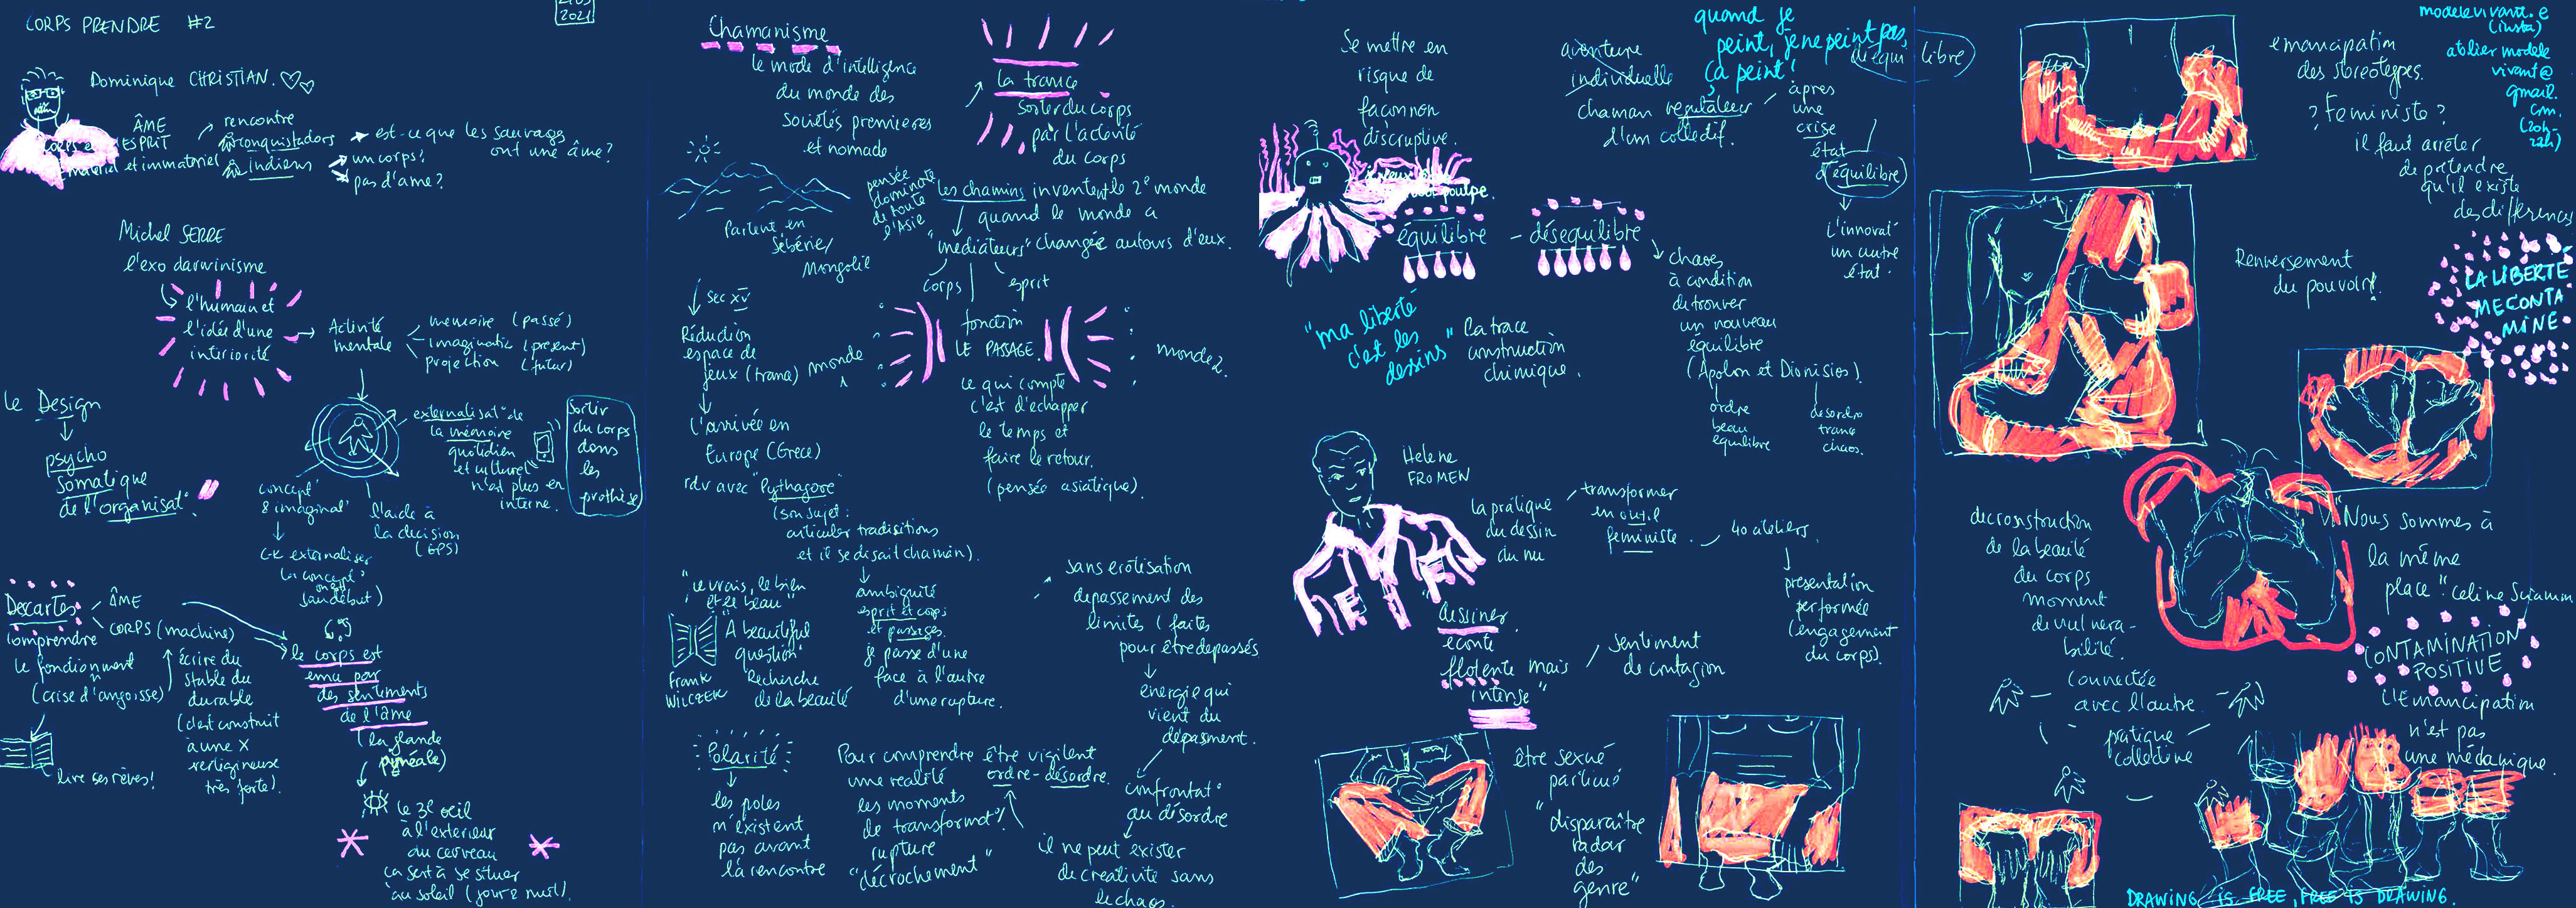 CORPS PRENDRE #2
2021
Dominique CHRISTIAN.
ÂME
CORPS et ESPRIT
matériel et immatériel
rencontre
conquistadors
indiens
est-ce que les sauvages
ont une âme?
un corps!
pas d'ame?
Michel SERRE
l'exo darwinisme
l'humain et
l'idée d'une
intériorité
Activité
mentale
memoire (passé)
imaginatio (present)
projection (futur)
le Design
psycho
somatique
de l'organisat°.
externalisat° de
la mémoire
quotidien
et culturel
n'est plus en
interne.
Sortir
du corps
dans
les
prothèse
concept°
& imaginat°
l'aide à
la decision
(GPS)
C-K externaliser
la concept°
(au début)
Descartes
ÂME
CORPS (machine)
comprendre
le fonctionment
(crise d'angoisse)
lire ses rêves!
écrire du
stable du
durable
(c'est construit
à une X
religieuse
très forte).
le corps est
ému par
des sentiments
de l'âme
(la glande
pynéale)
le 3e oeil
à l'exterieur
du cerveau
ça sert à se situer
au soleil (jour & nuit).
Chamanisme
le mode d'intelligence
du monde des
sociétés premieres
et nomade
la trance
Sortir du corps
par l'activité
du corps
Partent en
Sibérie/
Mongolie
pensée
dominate
de toute
l'Asie
les chamins inventent le 2e monde
quand le monde a
changée autours d'eux.
"mediateurs"
corps
esprit
fonction
LE PASSAGE.
monde
1
monde 2.
ce qui compte
c'est d'echapper
le temps et
faire le retour.
(pensée asiatique).
sec XV
Réduction
espace de
jeux (trans)
l'arrivée en
Europe (Grece)
rdv avec "Pythagore"
(son sujet:
articuler tradistions
et il se disait chaman).
"le vrais, le bien
et le beau"
"A beautiful
question"
Recherche
de la beauté
Frank
WILCZEK
ambiguité
esprit et corps
et passages.
je passe d'une
face à l'autre
d'une rupture.
sans erôtisation
depassement des
limites (faites
pour être depassés
energie qui
vient du
dépasment.
confrontat°
au désordre
Polarité
les poles
n'existent
pas avant
la rencontre
Pour comprendre
une realité
les moments
de transformat°.
rupture
"décrochement"
être vigilent
ordre-désordre.
il ne peut exister
de creativité sans
le chaos.
Se mettre en
risque de
façon non
disruptive.
poulpe.
équilibre - désequilibre
aventure
individuelle
chaman regulateur
d'um collectif.
quand je
peint, je ne peint pas,
ça peint!
après
une
crise
état
d'équilibre
déqui libre
l'innovat°
un autre
état.
chaos
à condition
de trouver
un nouveau
équilibre
(Apolon et Dionisios).
ordre
beau
equilibre
desordre
trance
chaos.
"ma liberté
c'est les
dessins"
la trace
construction
chimique.
Helene
FROMEN
la pratique
du dessin
du nu
transformer
en outil
feministe.
40 ateliers.
presentation
performée
(engagement
du corps).
"dessiner
ecoute
flotente mais
intense"
sentiment
de contagion
être sexué
particuls
"disparaître
radar
des
genre"
emancipation
des stereotypes.
? Feministe ?
il faut arrêter
de pretendre
qu'il existe
des differences
modelevivant.e
(insta)
atelier modele
vivant@
gmail.
com.
(20h-
22h)
Renversement
du pouvoir!
LA LIBERTE
ME CONTA
MINE
decronstruction
de la beauté
du corps
moment
de vulnera-
bilité.
"Nous sommes à
la même
place" Celine Sciamm
CONTAMINATION
POSITIVE
l'Emancipation
n'est pas
une mécanique.
connectée
avec l'autre.
pratique
collective
DRAWING IS FREE, FREE IS DRAWING.